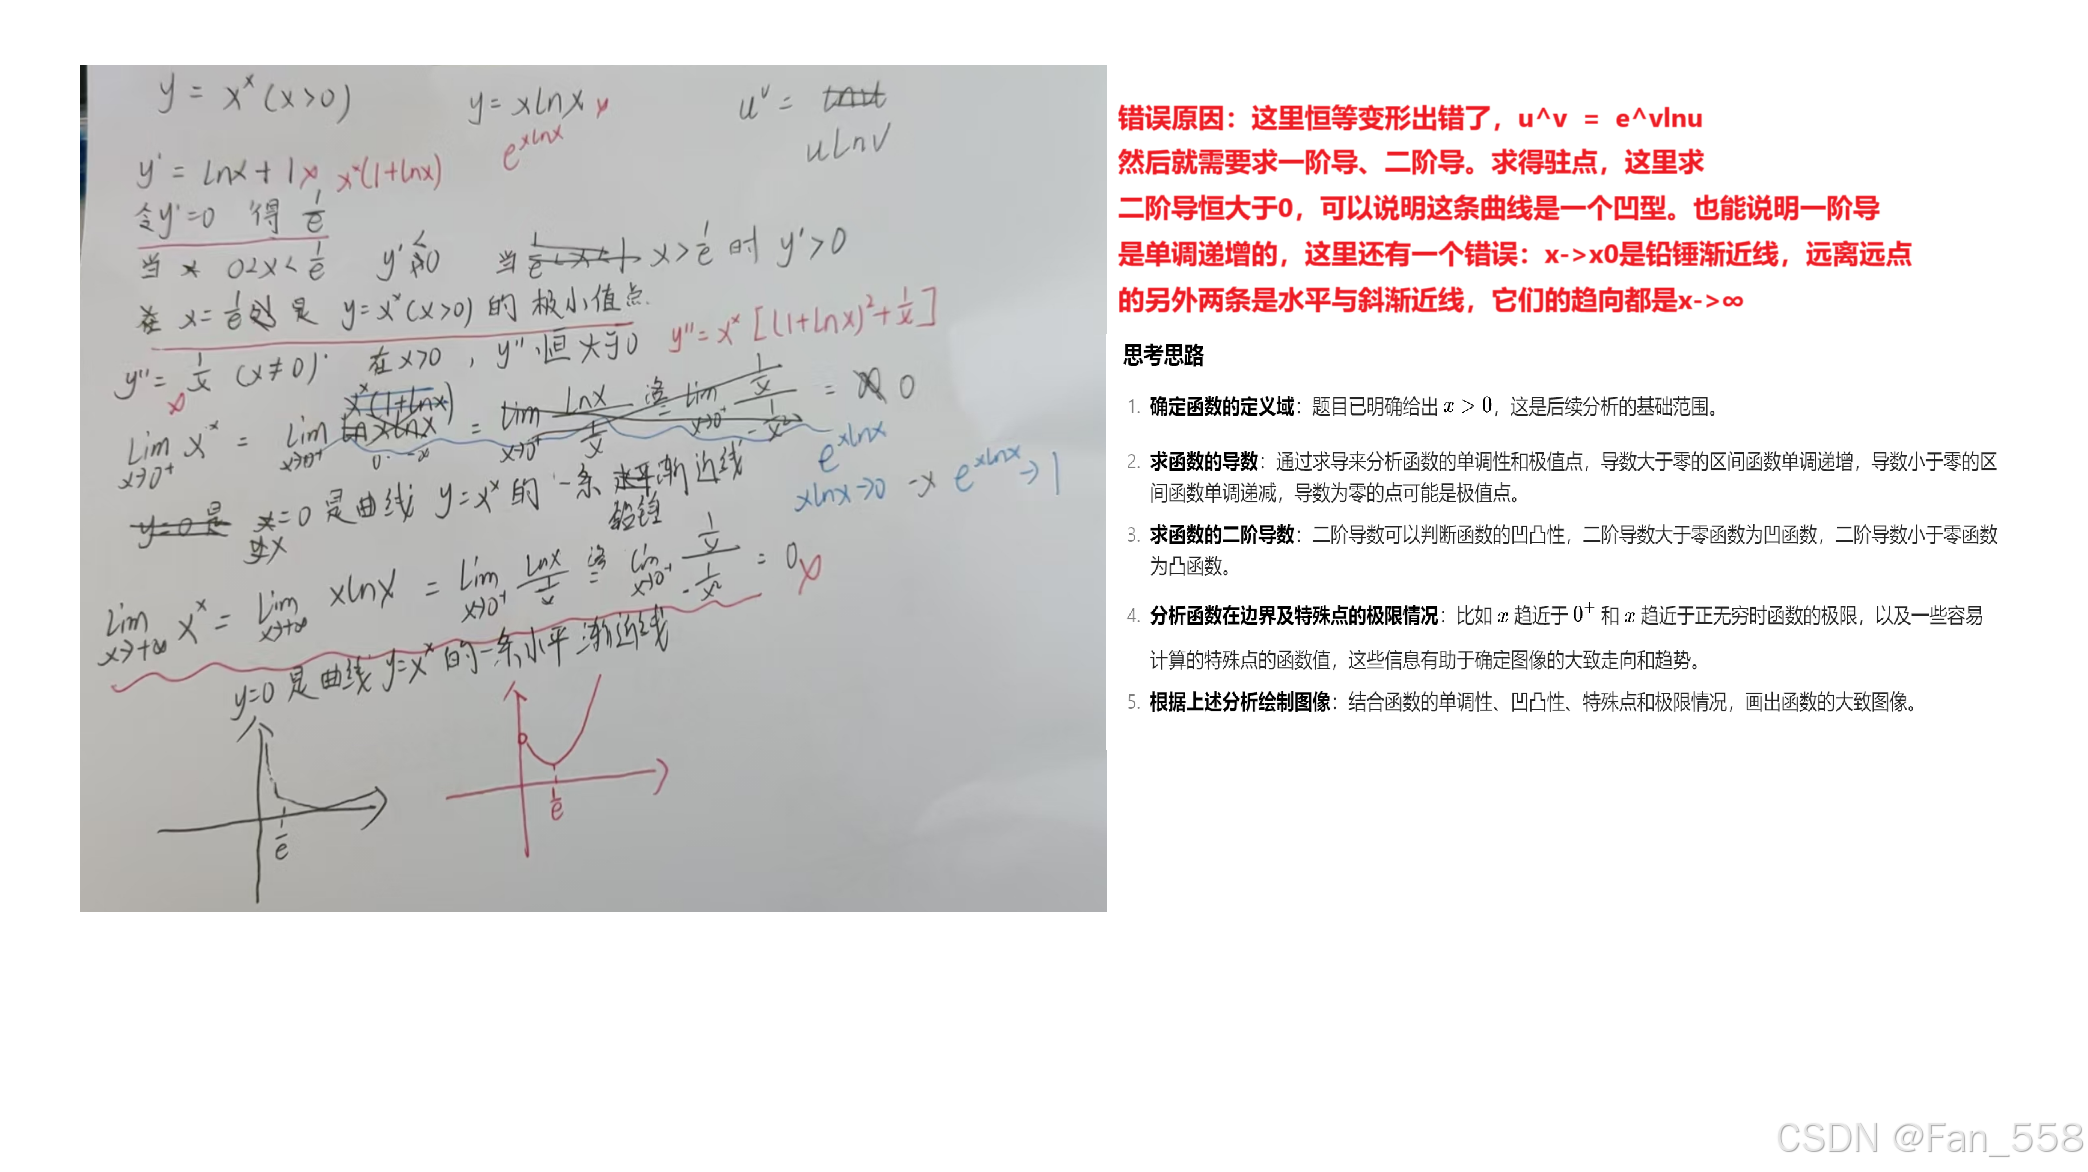 y = x^x (x>0)
y = xlnx ×
u^v = lnu
e^xlnx
ulnv
y' = lnx + 1 × x^x(1+lnx)
令y'=0 得 1/e
当 x 0<x<1/e y'<0 当 1/e<x<1 x>1/e 时 y'>0
在 x=1/e处是 y=x^x(x>0) 的 极小值点.
y'' = 1/x (x≠0). 在x>0, y''恒大于0 y''=x^x[(1+lnx)²+1/x]
×
lim x→0+ x^x = lim x→0+ x^x(1+lnx) = lim x→0+ lnx / 1/x 洛= lim x→0+ 1/x / -1/x² = 0
0 · -∞
e^xlnx
xlnx→0 → e^xlnx→1
y=0是 x=0 是曲线 y=x^x 的 一条 水平渐近线
铅锤
lim x→+∞ x^x = lim x→+∞ xlnx = lim x→0+ lnx / 1/x 洛= lim x→0+ 1/x / -1/x² = 0 ×
y=0 是曲线 y=x^x 的一条水平渐近线
1/e
1/e
错误原因：这里恒等变形出错了，u^v = e^vlnu
然后就需要求一阶导、二阶导。求得驻点，这里求
二阶导恒大于0，可以说明这条曲线是一个凹型。也能说明一阶导
是单调递增的，这里还有一个错误：x->x0是铅锤渐近线，远离远点
的另外两条是水平与斜渐近线，它们的趋向都是x->∞
思考思路
1. 确定函数的定义域：题目已明确给出 x > 0，这是后续分析的基础范围。
2. 求函数的导数：通过求导来分析函数的单调性和极值点，导数大于零的区间函数单调递增，导数小于零的区
间函数单调递减，导数为零的点可能是极值点。
3. 求函数的二阶导数：二阶导数可以判断函数的凹凸性，二阶导数大于零函数为凹函数，二阶导数小于零函数
为凸函数。
4. 分析函数在边界及特殊点的极限情况：比如 x 趋近于 0⁺ 和 x 趋近于正无穷时函数的极限，以及一些容易
计算的特殊点的函数值，这些信息有助于确定图像的大致走向和趋势。
5. 根据上述分析绘制图像：结合函数的单调性、凹凸性、特殊点和极限情况，画出函数的大致图像。
CSDN @Fan_558